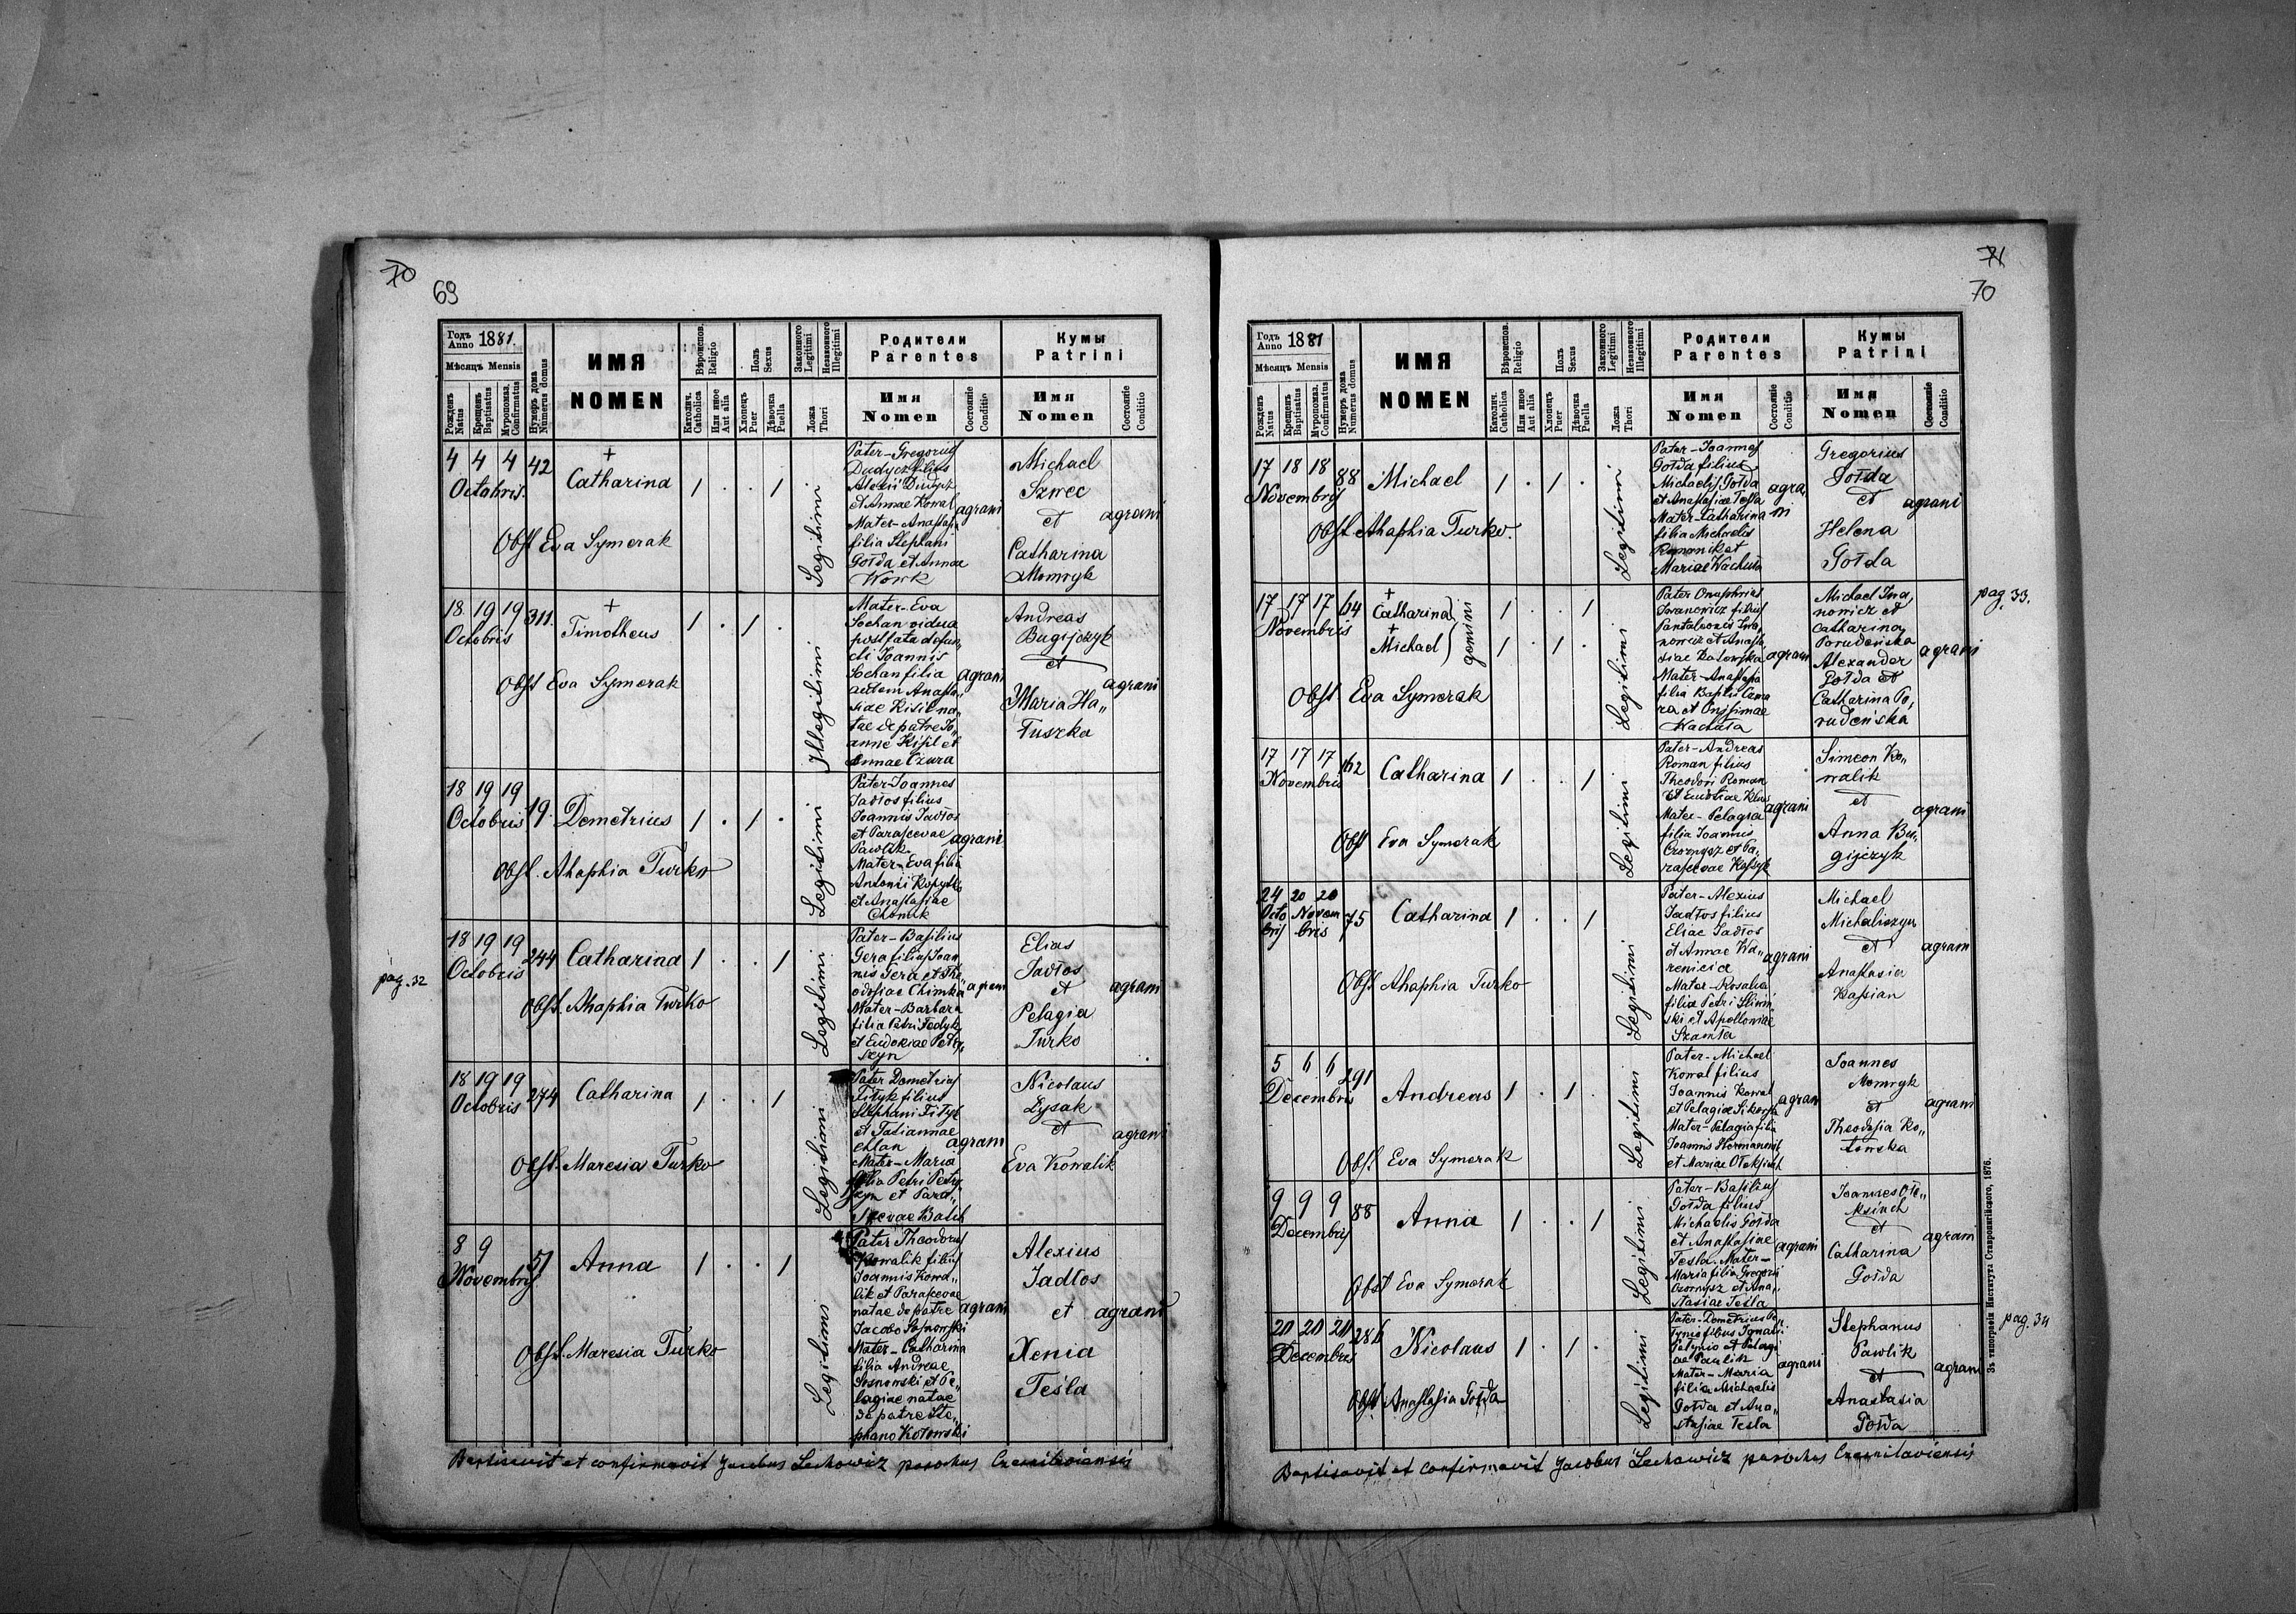 70
69
Годъ Anno 1881.
Мѣсяцъ Mensis
Рожденъ Natus
Крещенъ Baptisatus
Мѵропомаз. Confirmatus
Нумеръ дома Numerus domus
ИМЯ
NOMEN
Вѣроиспов. Religio
Католич. Catholica
Или иное Aut alia
Полъ Sexus
Хлопецъ Puer
Дѣвочка Puella
Законного Legitimi
Незаконного Illegitimi
Ложа Thori
Родители
Parentes
Имя
Nomen
Состояніе Conditio
Кумы
Patrini
Имя
Nomen
Состояніе Conditio
4 4 4 42
Octobris.
+
Catharina
1 . . 1
Obst Eva Symerak
Legitimi
Pater-Gregorius
Dudycz filius
Alexii Dudycz
et Annae Kowal
Mater-Anastasia
filia Stephani
Gołda et Annae
Work
agrani
Michael
Szwec
et
Catharina
Momryk
agrani
18 19 19 311.
Octobris
+
Timotheus
1 . 1 .
Obst Eva Symerak
Illegitimi
Mater-Eva
Sochan vidua
post fata defun
cti Joannis
Sochan filia
autem Anasta
siae Kisil na
tae de patre Jo
anne Kisil et
Annae Czura
agrani
Andreas
Bugijczyk
et
Maria Ha
Tuszka
agrani
18 19 19 19.
Octobris
Demetrius
1 . 1 .
Obst. Ahaphia Turko
Legitimi
Pater-Joannes
Jadłos filius
Joannis Jadłos
et Parascevae
Pawlik
Mater-Eva filia
Antonii Kopytko
et Anastasiae
agrani
pag. 32
18 19 19 244
Octobris
Catharina
1 . . 1
Obst. Ahaphia Turko
Legitimi
Pater-Basilius
Gera filius Joan
nis Gera et The
odosiae Chimka
Mater-Barbara
filia Petri Fedyk
et Eudoxiae Petry
szyn
agrani
Elias
Jadłos
et
Pelagia
Turko
agrani
18 19 19 274
Octobris
Catharina
1 . . 1
Obst. Maresia Turko
Legitimi
Pater Demetrius
Tityk filius
Stephani Tityk
et Tatiannae
Mater-Maria
filia Petri Petry
szyn et Para
scevae Balch
agrani
Nicolaus
Lysak
et
Eva Kowalik
agrani
8 9 51
Novembris
Anna
1 . . 1
Obst. Maresia Turko
Legitimi
Pater Theodorus
Kowalik filius
Joannis Kowa
lik et Parascevae
natae de patre
Jacobo Sosnowski
Mater-Catharina
filia Andreae
Sosnowski et Pe
lagiae natae
de patre Ste
phano Kotowski
agrani
Alexius
Jadłos
et
Xenia
Teśla
agrani
Baptisavit et confirmavit Jacobus Lechowicz parochus Czernilaviensis
71
70
Годъ Anno 1881
Мѣсяцъ Mensis
Рожденъ Natus
Крещенъ Baptisatus
Мѵропомаз. Confirmatus
Нумеръ дома Numerus domus
ИМЯ
NOMEN
Вѣроиспов. Religio
Католич. Catholica
Или иное Aut alia
Полъ Sexus
Хлопецъ Puer
Дѣвочка Puella
Законного Legitimi
Незаконного Illegitimi
Ложа Thori
Родители
Parentes
Имя
Nomen
Состояніе Conditio
Кумы
Patrini
Имя
Nomen
Состояніе Conditio
17 18 18 88
Novembris
Michael
1 . 1 .
Obst Ahaphia Turko.
Legitimi
Pater-Joannes
Gołda filius
Michaelis Gołda
et Anastasiae Tesla
Mater-Catharina
filia Michaelis
Romanik et
Mariae Wachuta
agra
ni
Gregorius
Gołda
et
Helena
Gołda
agrani
pag. 33.
17 17 17 64
Novembris
+
Catharina
+
Michael
gemini
1 . . 1
1 . 1 .
Obst Eva Symerak
Legitimi
Pater Onuphrius
Iwanowicz filius
Pantaleonis Iwa
nowicz et Anasta
siae Kotowska
Mater-Anastasia
filia Basilii Cama
ra et Onisimae
Wachuta
agrani
Michael Iwa
nowicz et
Catharina
Porudeńska
Alexander
Gołda et
Catharina Po
rudeńska
agrani
17 17 17 162
Novembris
Catharina
1 . . 1
Obst Eva Symerak
Legitimi
Pater-Andreas
Roman filius
Theodori Roman
et Eudoxiae Klus
Mater-Pelagia
filia Joannis
Czornysz et Pa
rascevae Kostyk
agrani
Simeon Ko
walik
et
Anna Bu
gijczyk
agrani
24 20 20 75
Octo Novem
bris bris
Catharina
1 . . 1
Obst Ahaphia Turko
Legitimi
Pater-Alexius
Jadłos filius
Eliae Jadłos
et Annae Wa
renicia
Mater-Rosalia
filia Petri Sliwiń
ski et Apolloniae
Szamła
agrani
Michael
Michaliszyn
et
Anastasia
Kassian
agrani
5 6 6 291
Decembris
Andreas
1 . 1 .
Obst Eva Symerak
Legitimi
Pater-Michael
Kowal filius
Joannis Kowal
et Pelagiae Sikorska
Mater-Pelagia filia
Joannis Hermanowicz
et Mariae Oleksiuch
agrani
Joannes
Momryk
et
Theodosia Ko
towska
agrani
9 9 9 88
Decembris
Anna
1 . . 1
Obst Eva Symerak
Legitimi
Pater-Basilius
Gołda filius
Michaelis Gołda
et Anastasiae
Tesla. Mater-
Maria filia Gregorii
Czornysz et Ana
stasiae Teśla
agrani
Joannes Ole
ksiuch
et
Catharina
Gołda
agrani
pag. 34
20 20 20 286
Decembris
Nicolaus
1 . 1 .
Obst Anastasia Gołda
Legitimi
Pater-Demetrius Pe
tynio filius Ignatii
Petynio et Pelagi
ae Pawlik
Mater-Maria
filia Michaelis
Gołda et Ana
stasiae Tesla
agrani
Stephanus
Pawlik
et
Anastasia
Gołda
agrani
Baptisavit et confirmavit Jacobus Lechowicz parochus Czernilaviensis
Зъ типографіи Института Ставропігійского, 1876.